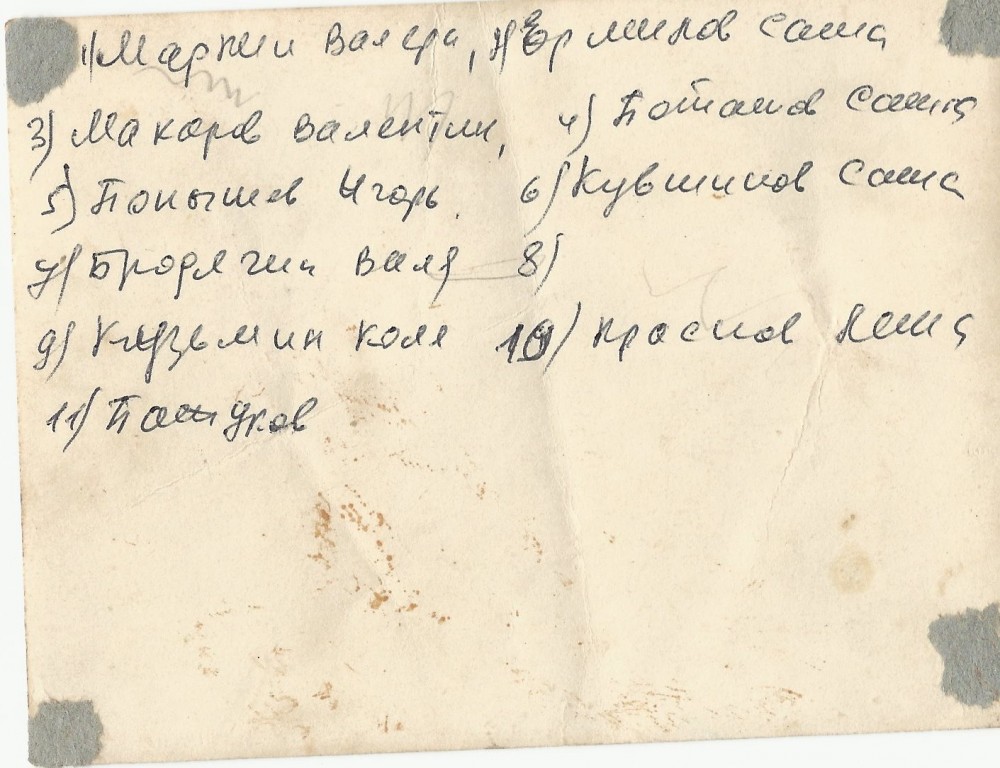 1) Маркин Валера, 2) Ерминов Саша
3) Макаров Валентин, 4) Потапов Саша
5) Понышев Игорь, 6) Кувшинов Саша
7) Бродягин Валя 8)
9) Кузьмин Коля 10) Краснов Леша
11) Пашуков